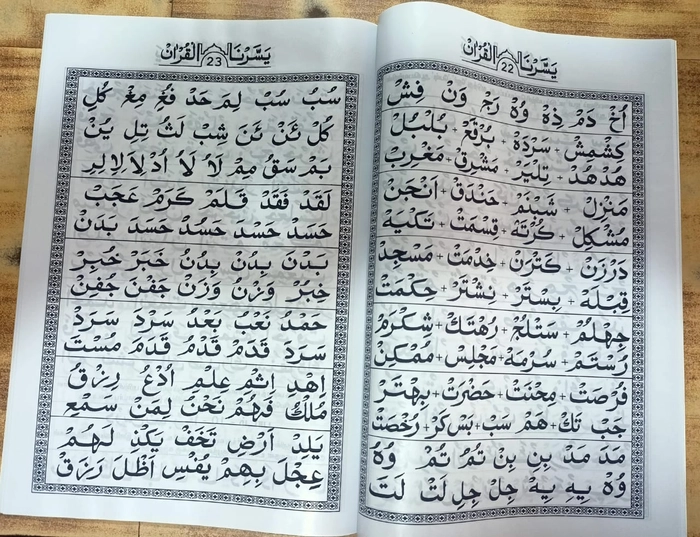 یَسَّرْنَا 22 الْقُرْاٰن
اُخْ دَمْ ذِهْ وُهْ رَجْ وَنْ فِشْ
كِشْمِشْ + سَرْدَهْ + بُرْقَعْ + بُلْبُلْ
هُدْهُدْ + بِلْيَرْ + مَشْرِقْ + مَغْرِبْ
مَنْزِلْ + شَبْنَمْ + خَنْدَقْ + اَنْجَنْ
مُشْكِلْ + كُرْتَهْ + قِسْمَتْ + تَكْيَهْ
دَرْزَنْ + كَتْرَنْ + خِدْمَتْ + مَسْجِدْ
قِبْلَهْ + بِسْتَرْ + نِشْتَرْ + حِكْمَتْ
جِهْلُمْ + سَتْلَجْ + رُهْتَكْ + شِكْرَمْ
رُسْتَمْ + سُرْمَهْ + مَجْلِسْ + مُمْكِنْ
فُرْصَتْ + مِحْنَتْ + حَضْرَتْ + بِهْتَرْ
جَبْ تَكْ + هَمْ سَبْ + بَسْ كَرْ + رُخْصَتْ
مَدَ مَدْ بِنِ بِنْ تُمُ تُمْ وُهُ
وُهْ يِهِ يِهْ جِلِ جِلْ لَتَ لَتْ
یَسَّرْنَا 23 الْقُرْاٰن
سُبُ سُبْ لِمَ حَدْ فُعُ مِعْ كُلِ
كُلْ ثَنْ ثَنَ شِبْ لَثُ تِلِ يُنْ
بَمْ سَقُ مِمْ لَاُ لَاْ اُدْ لِاَ لِاِ لِرِ
لَقَدْ فَقَدْ قَلَمْ كَرَمْ عَجَبْ
حَسِدْ حَسَدْ حَسُدْ حَسَدَ بَدَنْ
بَدْنَ بِدْنُ بِدُنْ خَبَرْ خُبِرْ
خِبَرُ وَزْنُ وَزَنْ جَفْنَ جُفِنْ
حَمْدُ نَعْبُ بَعْدُ سَرْدَ سَرَدْ
سَرَدَ قَدَمْ قَدْمُ قَدَمَ مُسْتَ
اِهْدِ اِثْمِ عِلْمِ اُدْعُ رِزْقُ
مُلْكُ فَهُمْ نَحْنُ لِمَنْ سَمِعْ
يَلِدْ اَرْضِ تَخَفْ يَكُنْ لَهُمْ
عِجْلَ بِهِمْ يُفْسِ اَظْلَ رَزَقْ